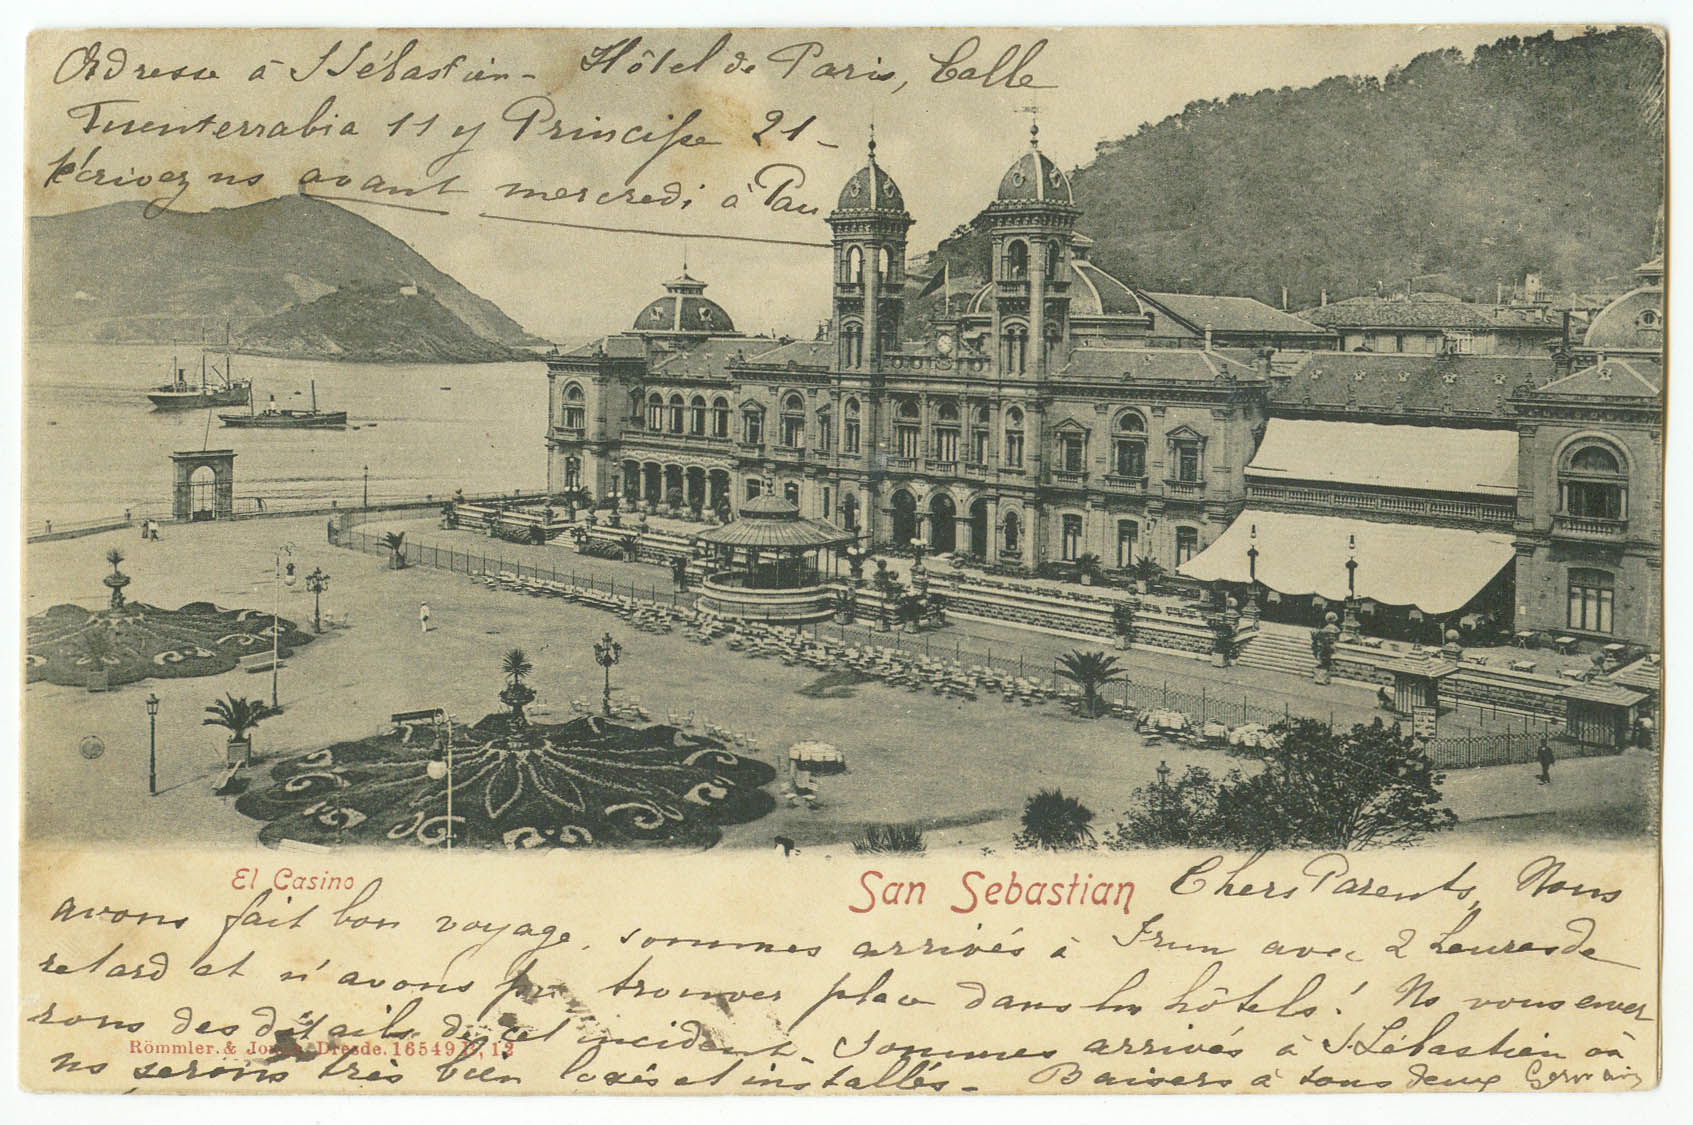 Adresse à S Sébastien - Hôtel de Paris, Calle
Fuenterrabia 11 y Principe 21 -
écrivez ns avant mercredi à Pau
El Casino
San Sebastian
Chers Parents, Nous
avons fait bon voyage, sommes arrivés à Irun avec 2 heures de
retard et n'avons pu trouver place dans les hôtels! Ns vous enver
rons des détails de cet incident - Sommes arrivés à S. Sébastien où
Römmler & Jonas, Dresde. 16549 12
ns serons très bien logés et installés - Baisers à tous deux Germain